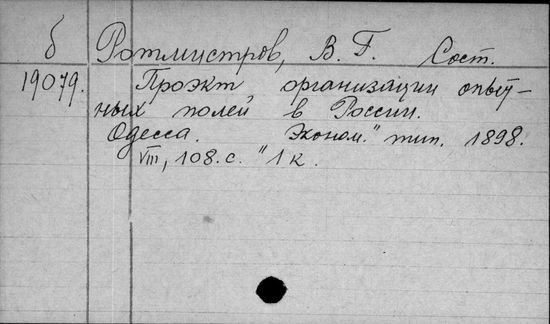 б Ротмистров, В. Г. Сост.
19079. Проэкт организации опыт-
ных полей в России.
Одесса. Эконом." тип. 1898.
VIII, 108 с. "1 к.